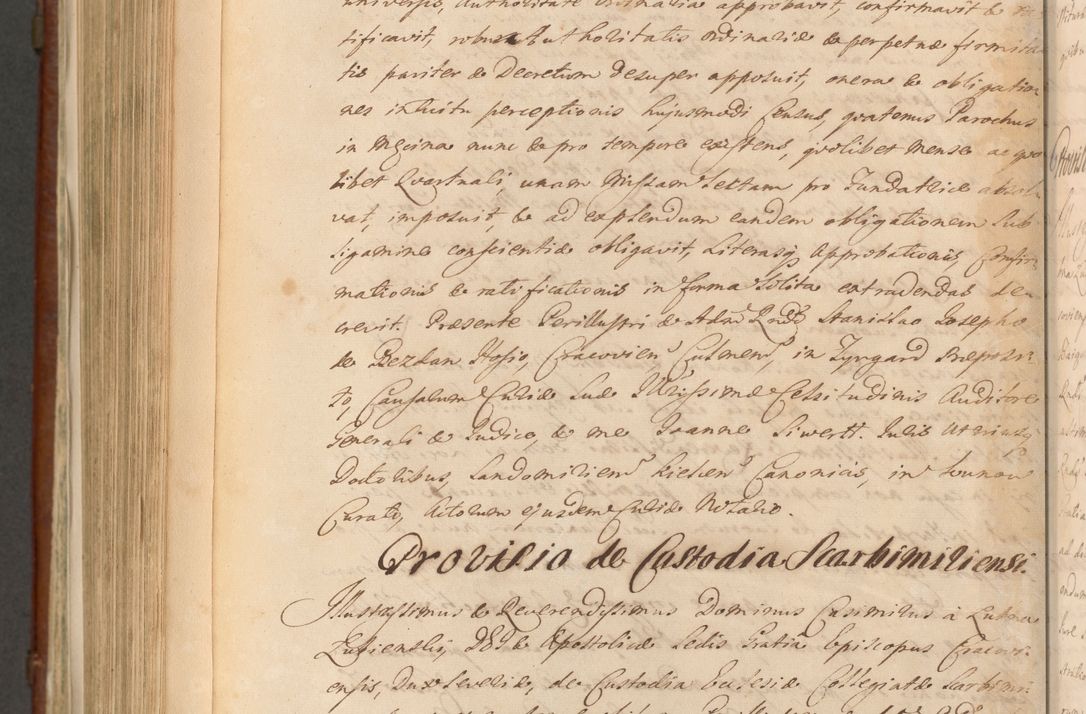 universis, Authoritate Ordinaria approbavit, confirmavit & ra
tificavit, robur Authoritatis Ordinariæ & perpetuæ firmita
tis pariter & Decretum desuper apposuit, onera & obligatio-
nes intuitu perceptionis hujusmodi Census, quatenus Parochus
in Mgcina nunc & pro tempore existens, quolibet Mense ac quo
libet Quartuali, unam Missam Lectam pro Fundatrice absol
vat, imposuit, & ad explendum eandem obligationem sub
ligamine conscientiæ obligavit, Literasq Approbationis, Confir
mationis & ratificationis in forma solita extradendas De
crevit. Præsente Perillustri & Adm Rndo Stanislao Josepho
de Bezdan Hosio, Cracovien Culmen, in Tyngard Præposi-
to, Causarum Curiæ Suæ Illrissimæ Celsitudinis Auditore
Generali & Judice, & me Joanne Siwertt. Juris Utriusq
Doctoribus, Sandomirien Kielcen Canonicis, in
Curato, Actorum ejusdem Curiæ Notario.
Provisio de Custodia Scarbimiriensi.
Illustrissimus & Reverendissimus Dominus Casimirus à Lubna
Łubienski, DEI & Apostolicæ Sedis Gratia Episcopus Cracovi-
ensis, Dux Severiæ, de Custodia Ecclesiæ Collegiatæ Scarbimi-